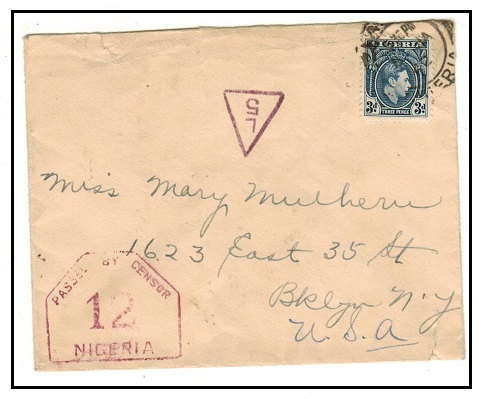 NIGERIA
3d 3d
THREE PENCE
L5
Miss Mary Mulhern
1623 East 35 St
Bklyn N.Y
U.S.A
PASSED BY CENSOR
12
NIGERIA